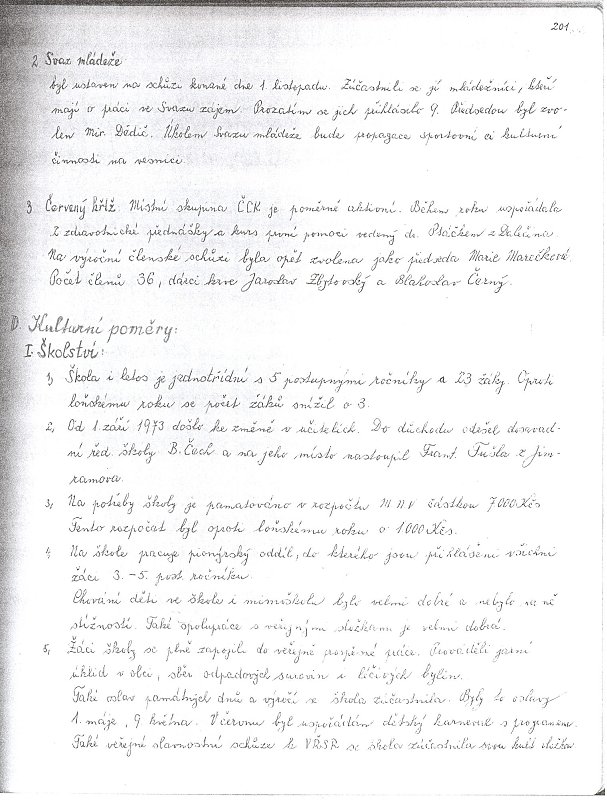 201.
2. Svaz mládeže
byl ustaven na schůzi konané dne 1. listopadu. Zúčastnili se jí mládežníci, kteří
mají o práci ve Svazu zájem. Prozatím se jich přihlásilo 9. Předsedou byl zvo-
len Mir. Dědič. Úkolem Svazu mládeže bude propagace sportovní či kulturní
činnosti na vesnici.
3. Červený kříž. Místní skupina ČČK je poměrně aktivní. Během roku uspořádala
2 zdravotnické přednášky a kurs první pomoci vedený dr. Ptáčkem z Dalečína.
Na výroční členské schůzi byla opět zvolena jako předseda Marie Marečková
Počet členů 36, dárci krve Jaroslav Zbytovský a Blahoslav Černý.
D. Kulturní poměry:
I. Školství:
1, Škola i letos je jednotřídní s 5 postupnými ročníky a 23 žáky. Oproti
loňskému roku se počet žáků snížil o 3.
2, Od 1. září 1973 došlo ke změně v učitelích. Do důchodu odešel dosavad-
ní řed. školy B. Čech a na jeho místo nastoupil Frant. Tušla z Jim-
ramova.
3, Na potřeby školy je pamatováno v rozpočtu MNV částkou 7000 Kčs
Tento rozpočet byl oproti loňskému roku o 1000 Kčs.
4, Na škole pracuje pionýrský oddíl, do kterého jsou přihlášeni všichni
žáci 3. - 5. post. ročníku.
Chování dětí ve škole i mimoškolu bylo velmi dobré a nebylo na ně
stížností. Také spolupráce s veřejnými složkami je velmi dobrá.
5, Žáci školy se plně zapojili do veřejně prospěšné práce. Prováděli jarní
úklid v obci, sběr odpadových surovin i léčivých bylin.
Také oslav památných dnů a výročí se škola zúčastnila. Byly to oslavy
1. máje, 9 května. V červnu byl uspořádán dětský karneval s programem.
Také veřejné slavnostní schůze k VŘSR se škola zúčastnila svou kult. vložkou